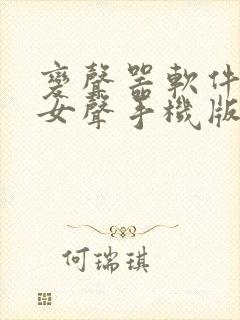 變聲器軟件
女聲手機版
何瑞琪